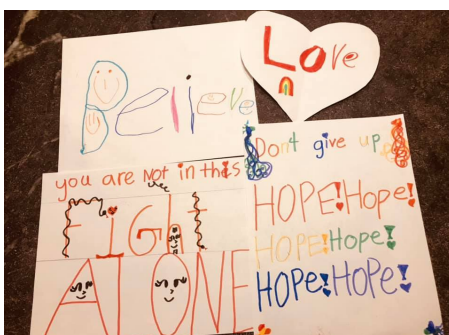 Believe
Love
you are Not in this
FiGht
AlONE
Don't give up
HOPE!Hope!
HOPE!Hope!
HOPE!HOPE!